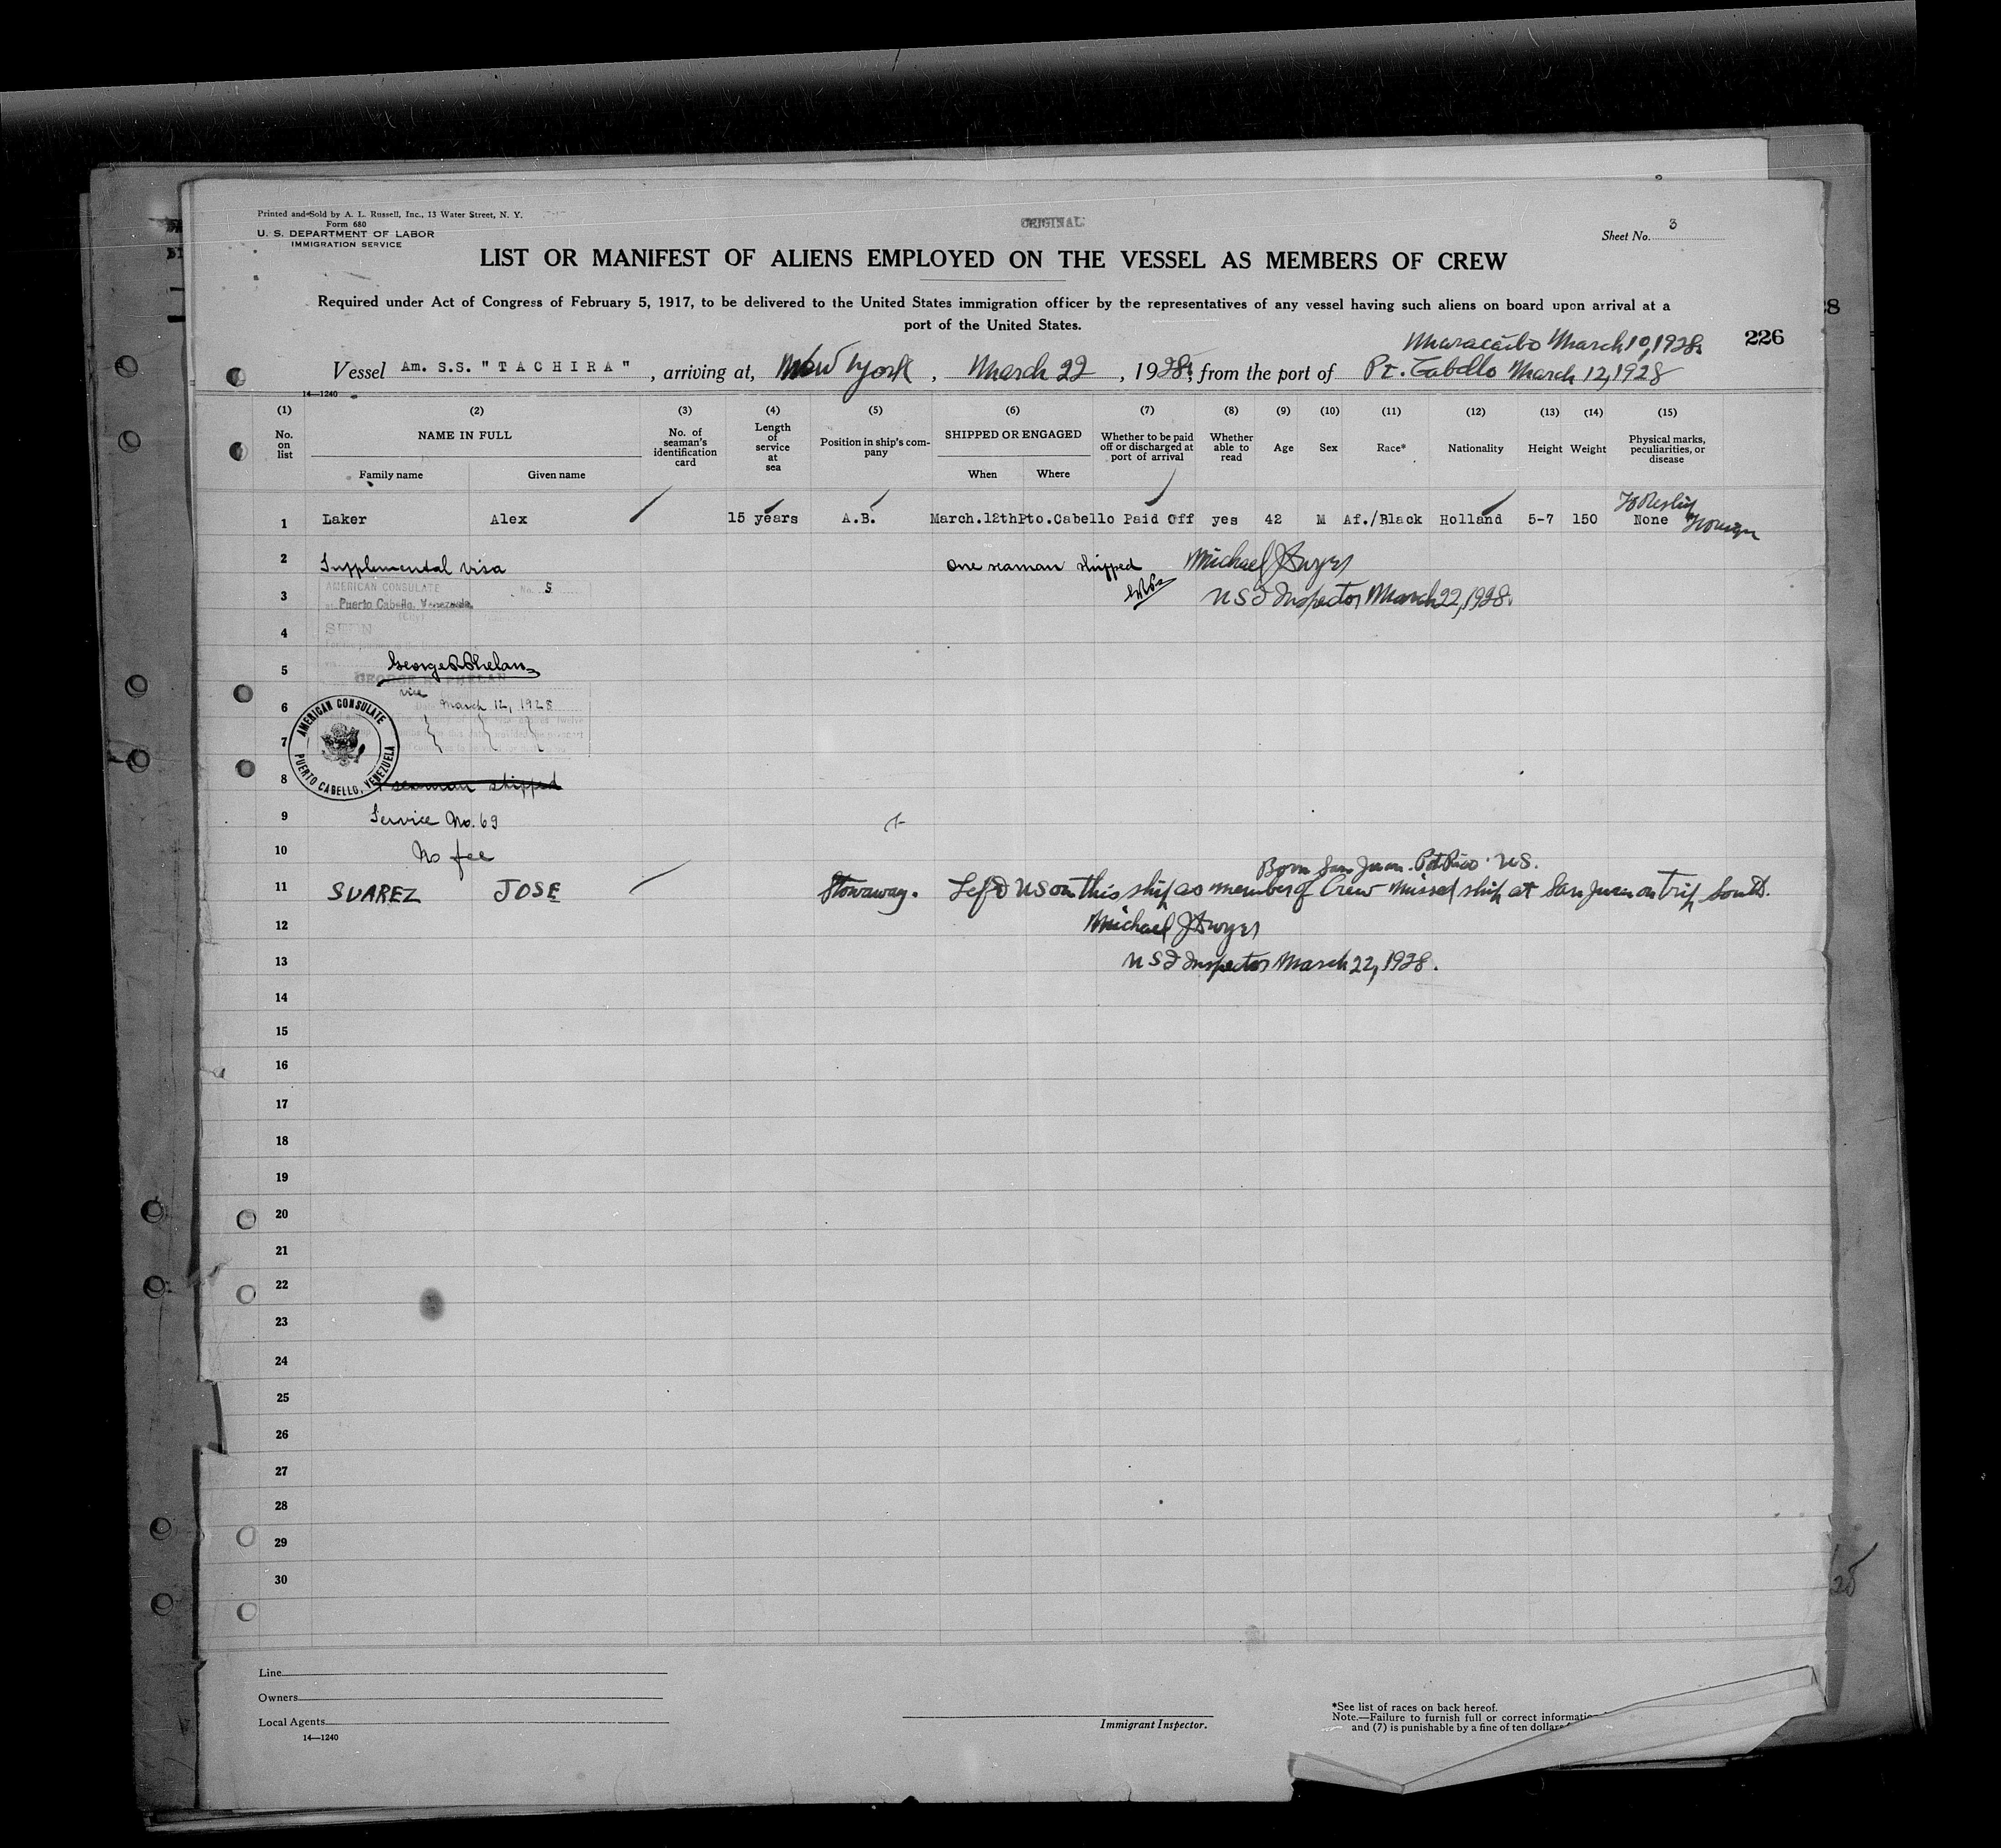 Printed and Sold by A. L. Russell, Inc., 13 Water Street, N. Y.
Form 680
U. S. DEPARTMENT OF LABOR
IMMIGRATION SERVICE
ORIGINAL
Sheet No. 3
LIST OR MANIFEST OF ALIENS EMPLOYED ON THE VESSEL AS MEMBERS OF CREW
Required under Act of Congress of February 5, 1917, to be delivered to the United States immigration officer by the representatives of any vessel having such aliens on board upon arrival at a
port of the United States.
226
Maracaibo March 10, 1928
Vessel Am. S.S. "TACHIRA", arriving at, New York, March 22, 1928, from the port of Pt. Cabello March 12, 1928
14—1240
(1) (2) (3) (4) (5) (6) (7) (8) (9) (10) (11) (12) (13) (14) (15)
No. on list
NAME IN FULL
Family name
Given name
No. of seaman's identification card
Length of service at sea
Position in ship's company
SHIPPED OR ENGAGED
When
Where
Whether to be paid off or discharged at port of arrival
Whether able to read
Age
Sex
Race*
Nationality
Height
Weight
Physical marks, peculiarities, or disease
1 Laker Alex 15 years A.B. March.12th Pto.Cabello Paid Off yes 42 M Af./Black Holland 5-7 150 None
2 Supplemental visa one seaman shipped Michael J Dwyer
AMERICAN CONSULATE No. 5
3 Puerto Cabello, Venezuela. U S I Inspector March 22, 1928.
(City)
4 SEEN
5 George R Phelan
GEORGE R. PHELAN
vice
6 Date March 12, 1928
7
AMERICAN CONSULATE
PUERTO CABELLO, VENEZUELA
8 seaman shipped
9 Service No. 69
10 No fee
Born San Juan. Pot Rico. U S.
11 SUAREZ JOSE Stowaway. Left U S on this ship as member of Crew missed ship at San Juan on trip South.
12 Michael J Dwyer
13 U S I Inspector March 22, 1928.
14
15
16
17
18
19
20
21
22
23
24
25
26
27
28
29
30
Line
Owners
Local Agents
14—1240
Immigrant Inspector.
*See list of races on back hereof.
Note.—Failure to furnish full or correct information
and (7) is punishable by a fine of ten dollars